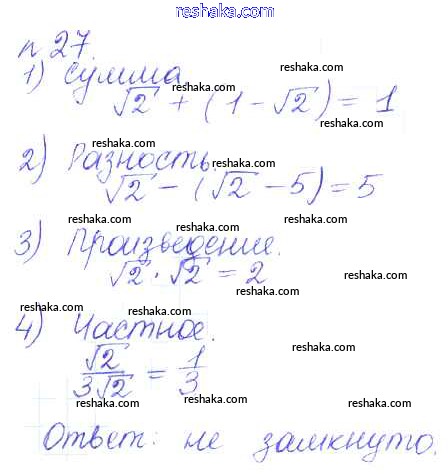 www.reshak.ru
n 27.
1) Сумма.
reshaka.com
reshaka.com
√2 + (1 - √2) = 1
reshaka.com
reshaka.com
2) Разность.
reshaka.com
√2 - (√2 - 5) = 5
reshaka.com
reshaka.com
3) Произведение.
reshaka.com
√2 · √2 = 2
reshaka.com
reshaka.com
reshaka.com
4) Частное.
reshaka.com
√2/3√2 = 1/3
reshaka.com
reshaka.com
Ответ: не замкнуто.
reshaka.com